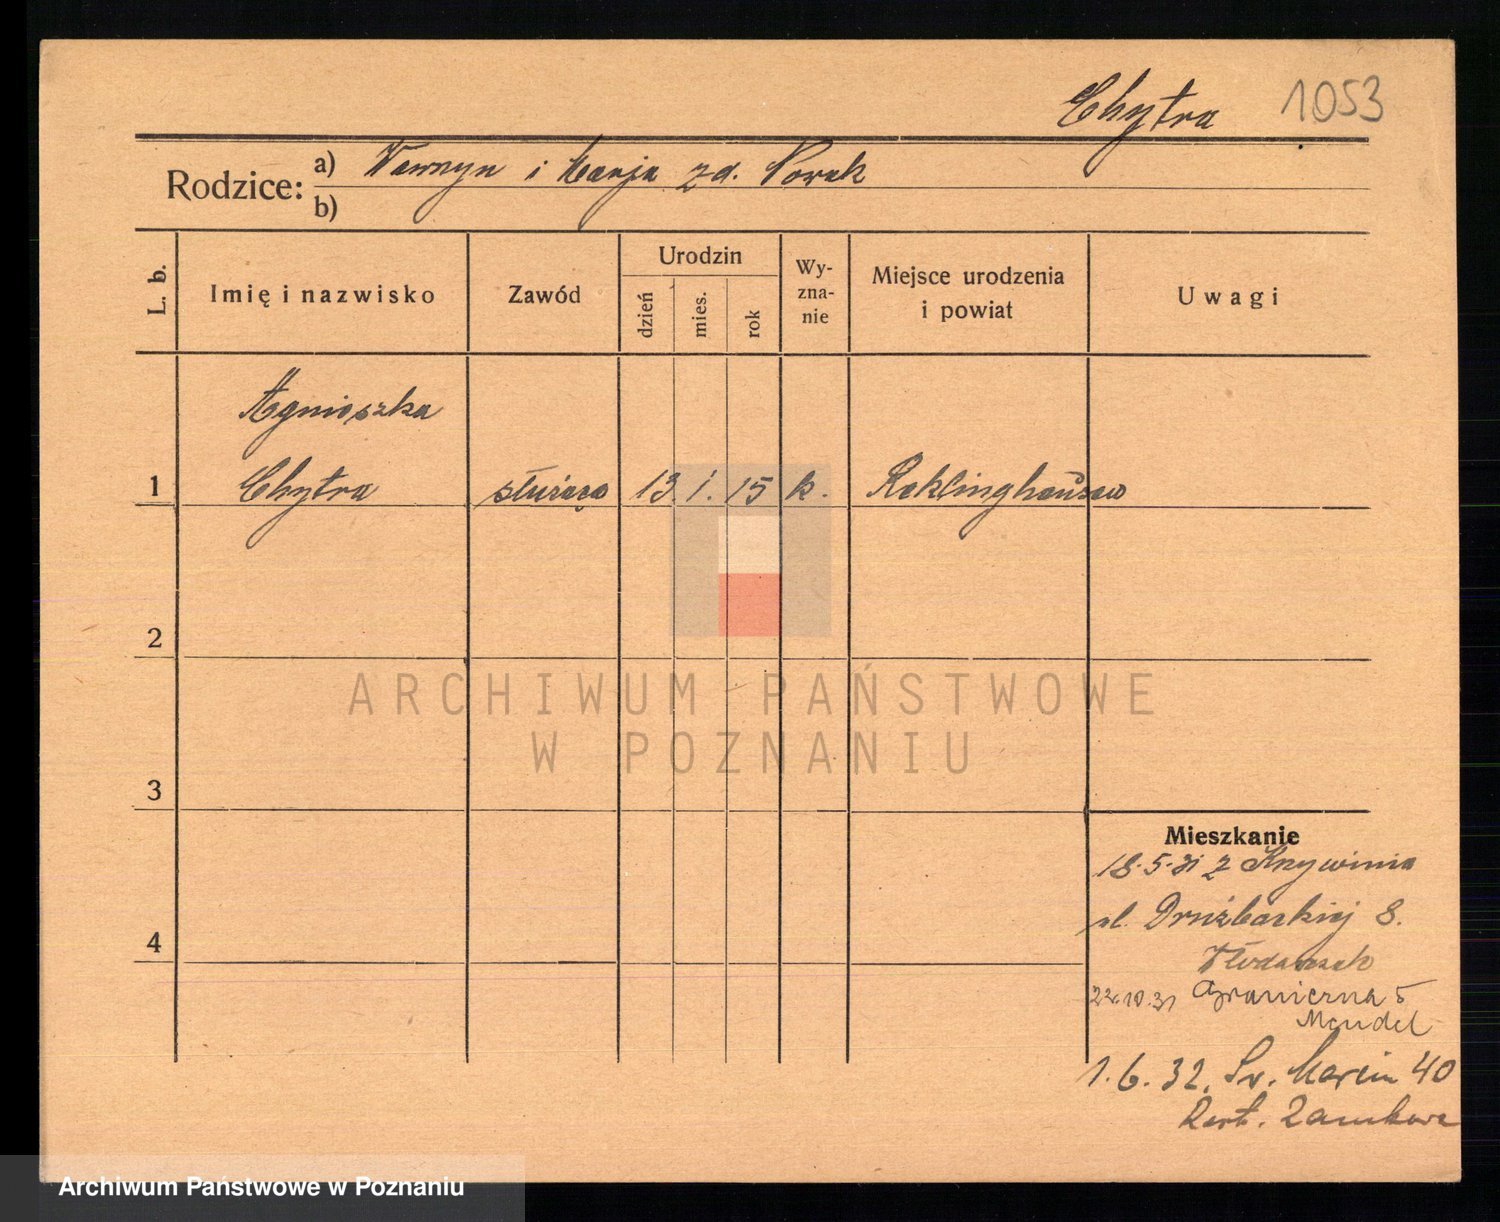 Chytra 1053
Rodzice: a) Wawrzyn i Marja zd. Nowak
b)
L. b. Imię i nazwisko Zawód Urodzin dzień mies. rok Wy-zna-nie Miejsce urodzenia i powiat Uwagi
Agnieszka
1 Chytra służąca 13. 1. 15 k. Reklinghausen
2
ARCHIWUM PAŃSTWOWE
W POZNANIU
3
Mieszkanie
18.5.31 z Krzywinia
ul. Drużbackiej 8.
4
Włodarczak
22.10.31 Graniczna 5
Mendel
1.6.32. Św. Marcin 40
Rest. Zamkowa
Archiwum Państwowe w Poznaniu